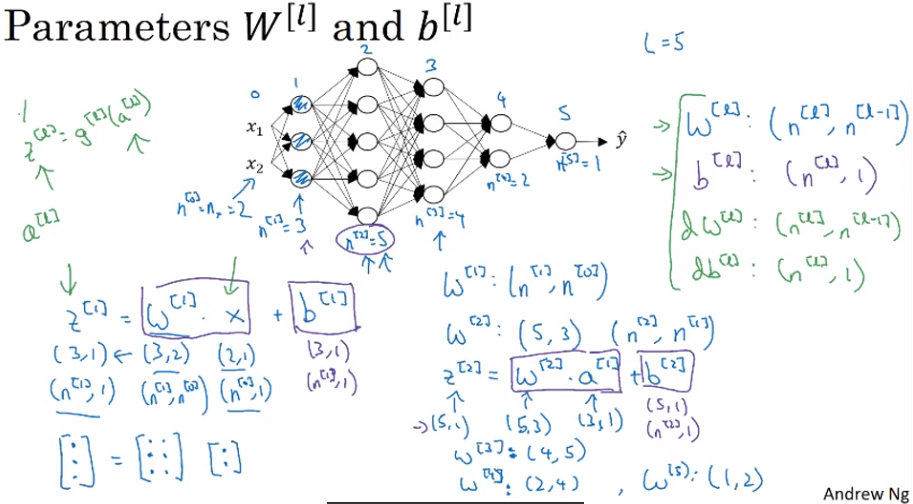 Parameters W^[l] and b^[l]
L=5
0 1 2 3 4 5
x₁
x₂
ŷ
n^[0]=nₓ=2
n^[1]=3
n^[2]=5
n^[3]=4
n^[4]=2
n^[5]=1
z^[l]=g^[l](a^[l])
a^[l]
→ W^[l]: (n^[l], n^[l-1])
→ b^[l]: (n^[l], 1)
dW^[l]: (n^[l], n^[l-1])
db^[l]: (n^[l], 1)
z^[1] = W^[1] · x + b^[1]
(3,1) ← (3,2) (2,1) (3,1)
(n^[1],1) (n^[1],n^[0]) (n^[0],1) (n^[1],1)
[⋮] = [⋮ ⋮] [:]
W^[1]: (n^[1], n^[0])
W^[2]: (5,3) (n^[2], n^[1])
z^[2] = W^[2] · a^[1] + b^[2]
→(5,1) (5,3) (3,1) (5,1)
(n^[2],1)
W^[3]: (4,5)
W^[4]: (2,4) , W^[5]: (1,2)
Andrew Ng